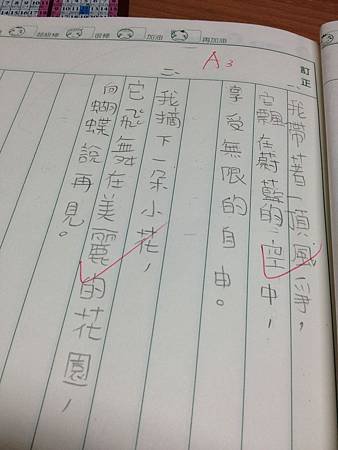 超級棒 很棒 加油 再加油
A3
訂正
我帶著一頂風箏，
它飄在蔚藍的空中，
享受無限的自由。
二、
我摘下一朵小花，
它飛舞在美麗的花園，
向蝴蝶說再見。